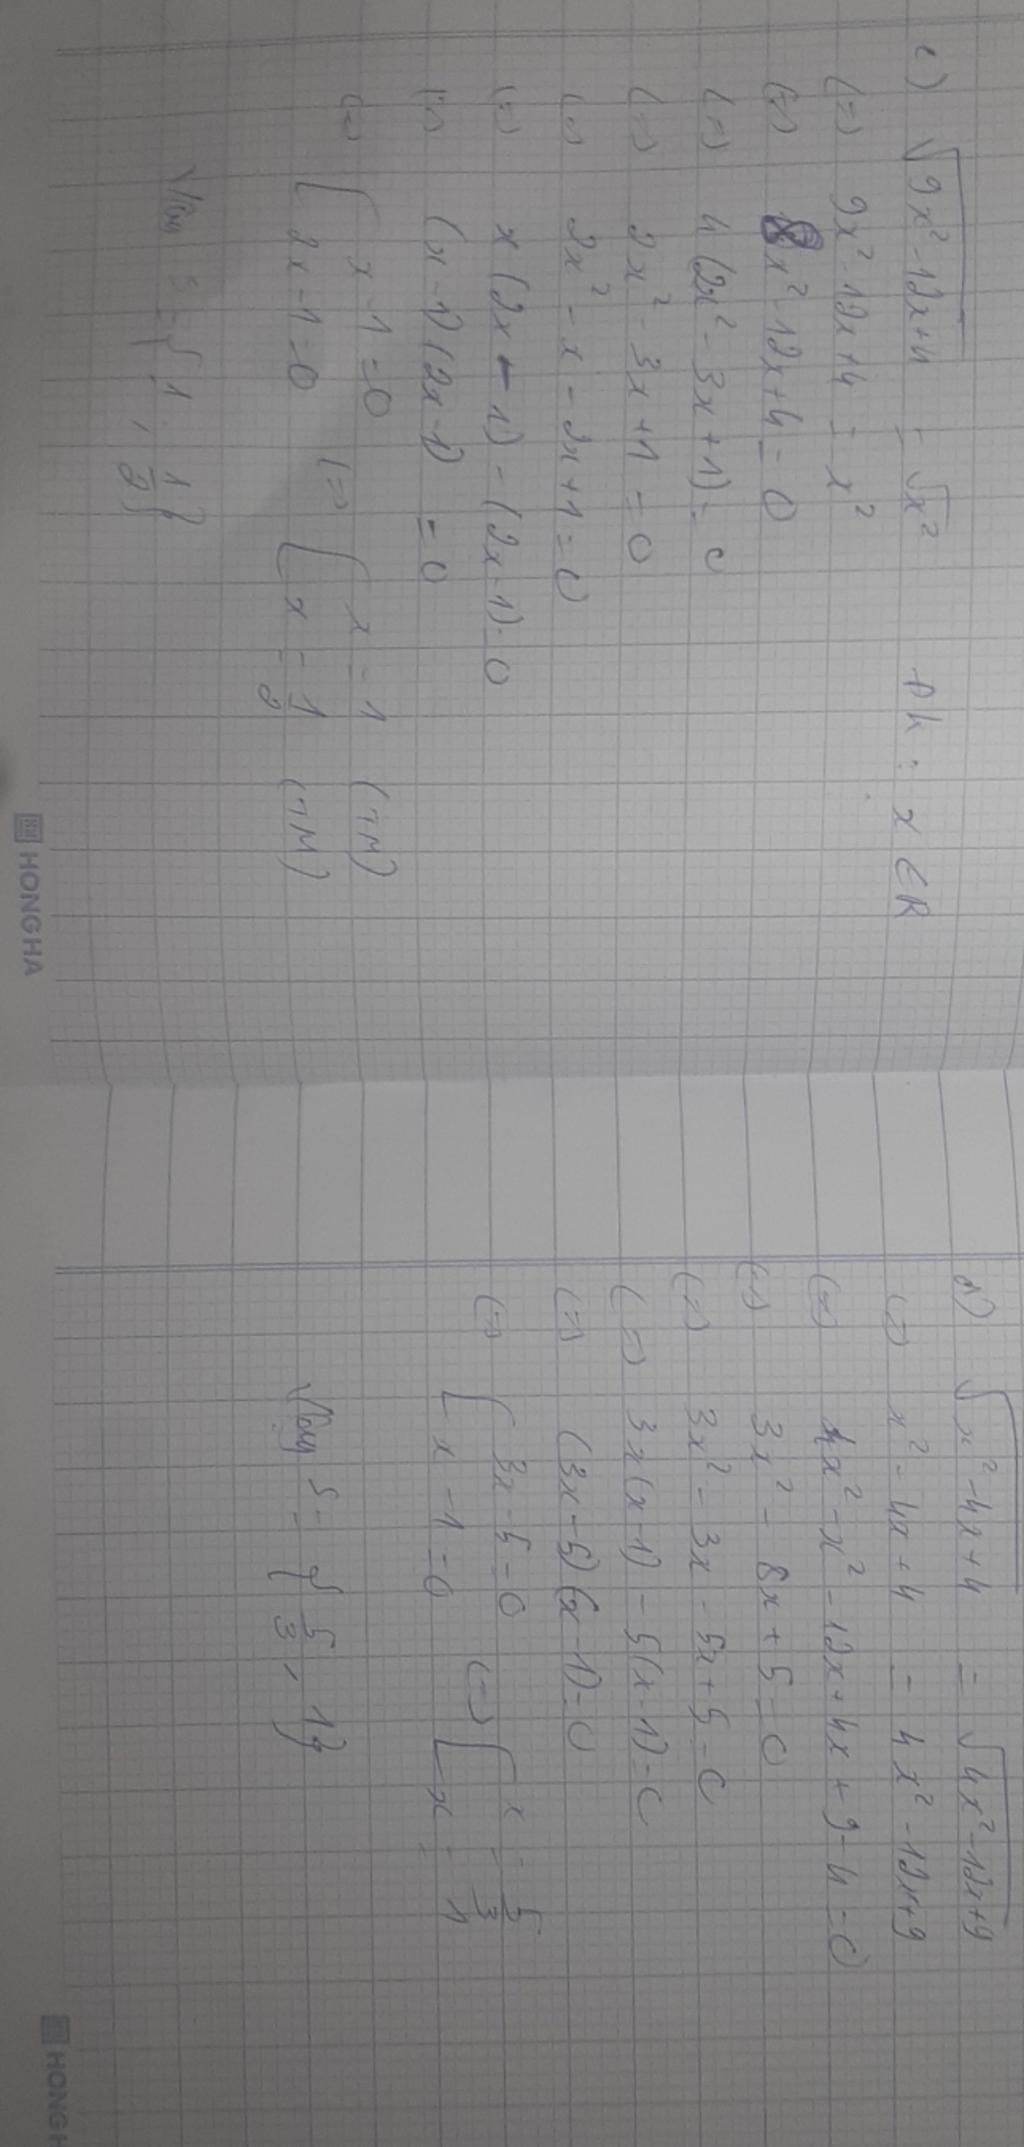 c) √(9x² - 12x + 4) = √x² ĐK : x ∈ R
(=) 9x² - 12x + 4 = x²
(=) 8x² - 12x + 4 = 0
(=) 4(2x² - 3x + 1) = 0
(=) 2x² - 3x + 1 = 0
(=) 2x² - x - 2x + 1 = 0
(=) x(2x - 1) - (2x - 1) = 0
(=) (x - 1)(2x - 1) = 0
(=) [ x - 1 = 0 (=) [ x = 1 (TM)
2x - 1 = 0 x = 1/2 (TM)
Vậy S = { 1 , 1/2 }
HONGHA
d) √(x² - 4x + 4) = √(4x² - 12x + 9)
(=) x² - 4x + 4 = 4x² - 12x + 9
(=) 4x² - x² - 12x + 4x + 9 - 4 = 0
(=) 3x² - 8x + 5 = 0
(=) 3x² - 3x - 5x + 5 = 0
(=) 3x(x - 1) - 5(x - 1) = 0
(=) (3x - 5)(x - 1) = 0
(=) [ 3x - 5 = 0 (=) [ x = 5/3
x - 1 = 0 x = 1
Vậy S = { 5/3 , 1 }
HONGH